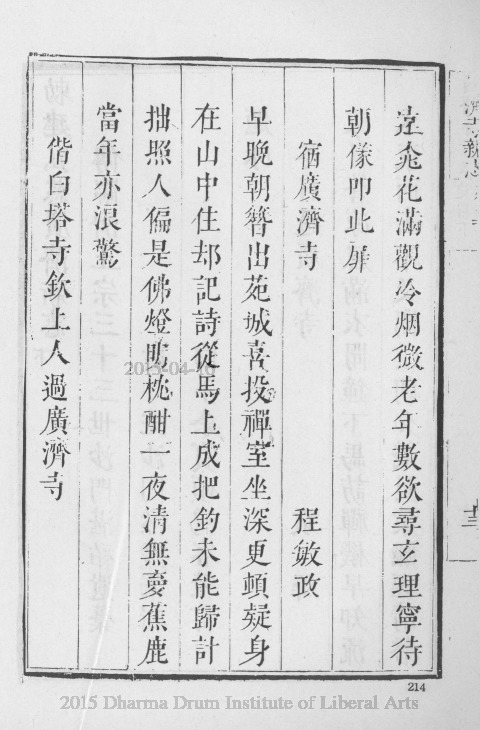 遠桃花滿觀冷烟微老年數欲尋玄理寧待
朝儀叩此扉
宿廣濟寺 程敏政
早晚朝簪出苑城喜投禪室坐深更頓疑身
在山中住却記詩從馬上成把釣未能歸計
拙照人偏是佛燈明枕酣一夜清無夢蕉鹿
當年亦浪驚
偕白塔寺欽上人過廣濟寺
十三
214
2015-04-10
2015 Dharma Drum Institute of Liberal Arts